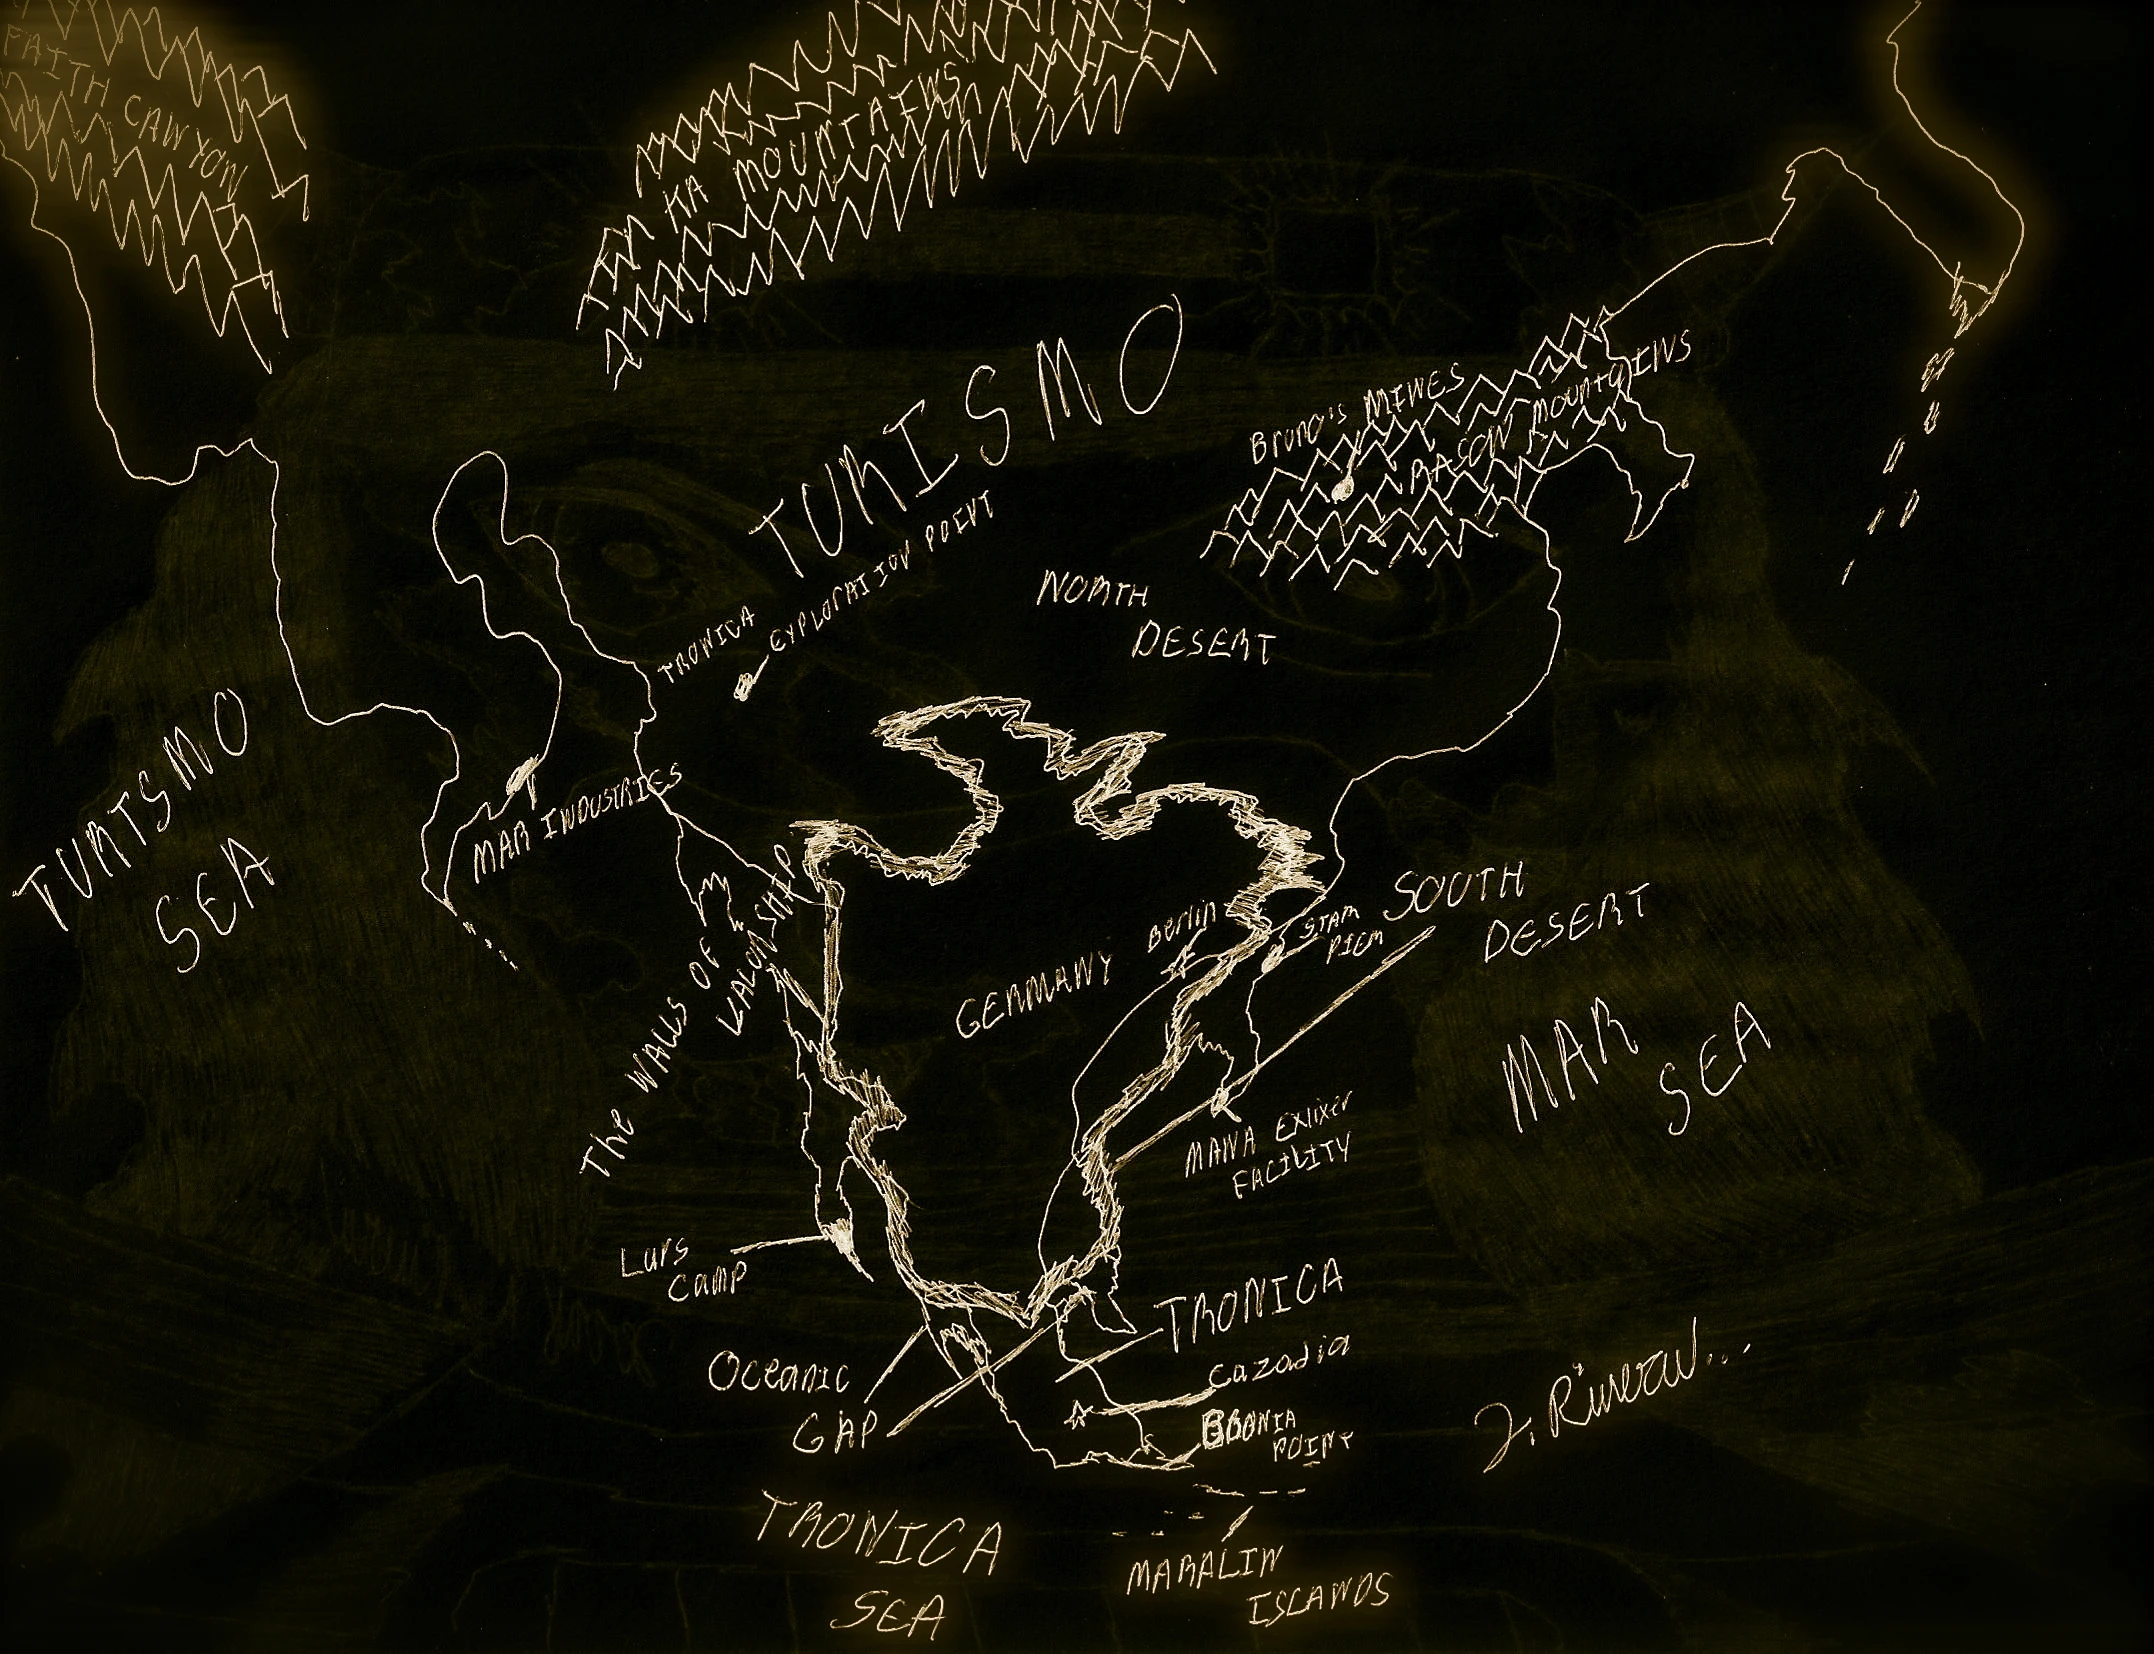 FAITH CANYON
KA MOUNTAINS
TURISMO
Bruno's MINES
RASCON MOUNTAINS
TRONICA
EXPLORATION POINT
NORTH
DESERT
TURISMO
SEA
MAR INDUSTRIES
The WALLS OF
WALONSHIP
GERMANY
Berlin
STAR
PIER
SOUTH
DESERT
MAR
SEA
MANA Exlixer
FACILITY
Lurs
Camp
OCEANIC
GAP
TRONICA
Cazadia
POINT
TRONICA
SEA
MARALIN
ISLANDS